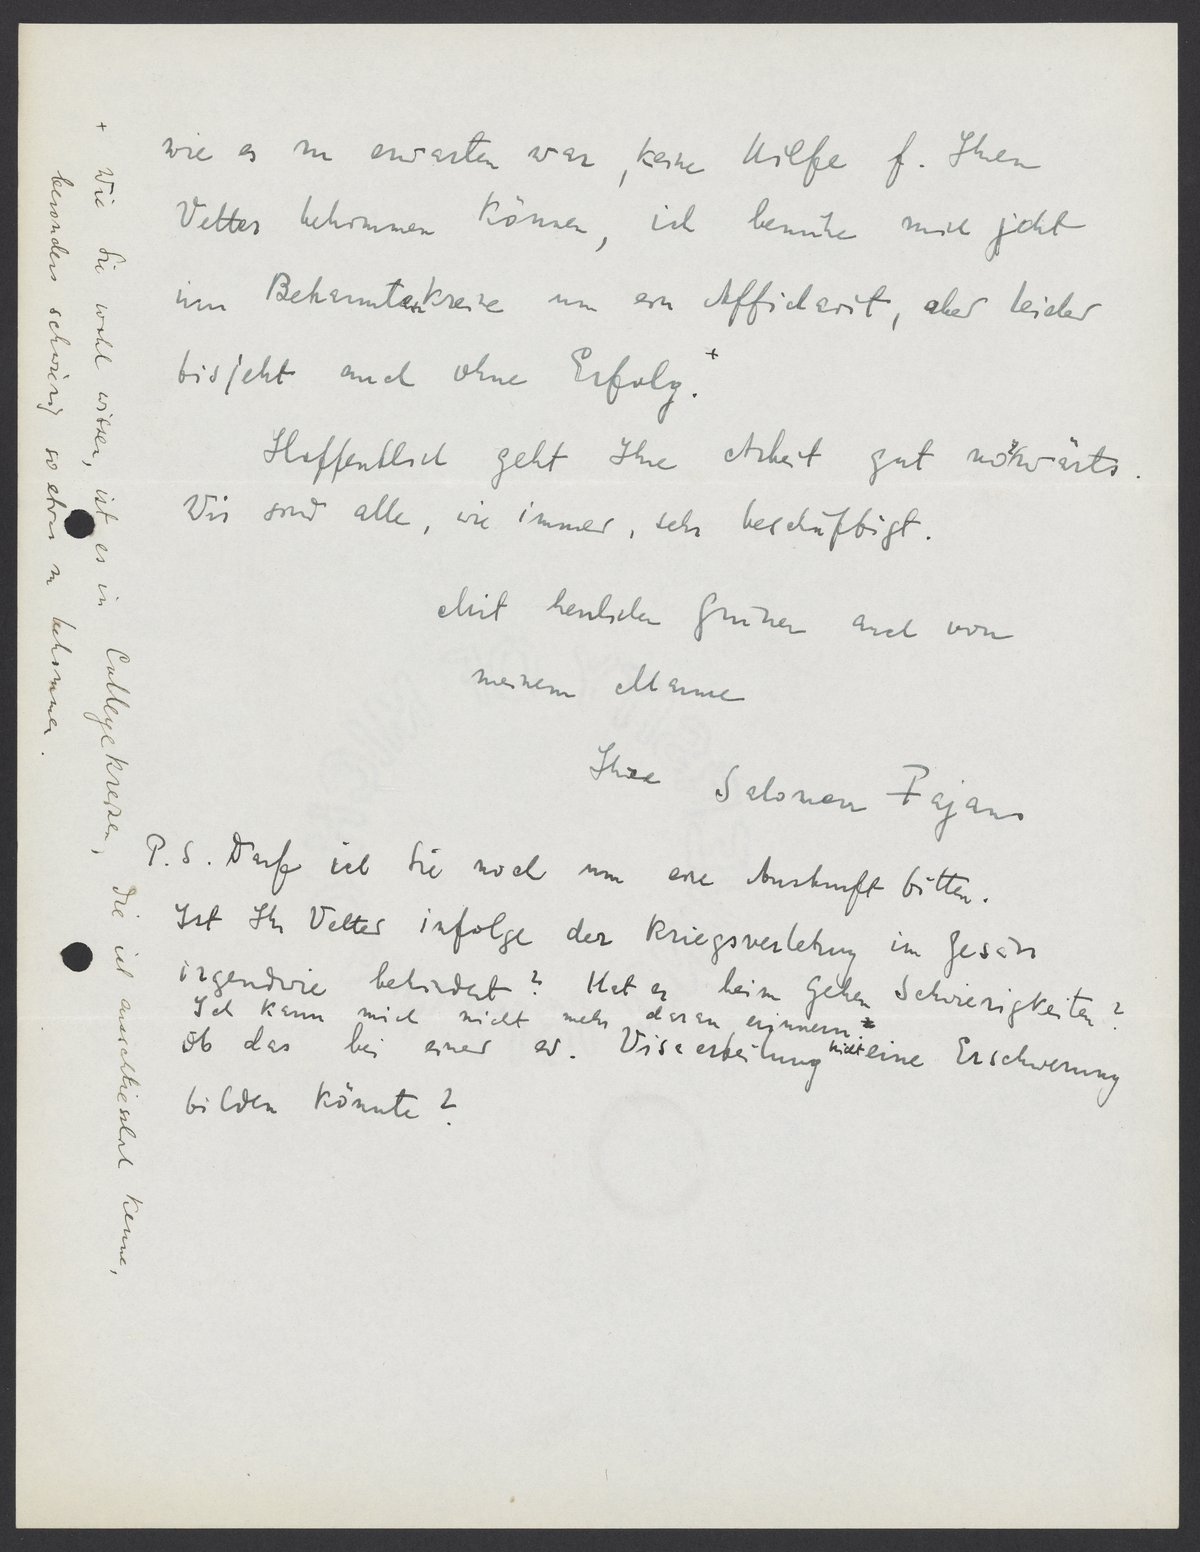 wie es zu erwarten war, keine Hilfe f. Ihren
Vetter bekommen können, ich bemühe mich jetzt
im Bekanntenkreise um ein Affidavit, aber leider
bisjetzt auch ohne Erfolg.+
Hoffentlich geht Ihre Arbeit gut vorwärts.
Wir sind alle, wie immer, sehr beschäftigt.
Mit herzlichen Grüssen auch von
meinem Manne
Ihre Salomea Fajans
P.S. Darf ich Sie noch um eine Auskunft bitten.
Ist Ihr Vetter infolge der Kriegsverletzung im Gesäss
irgendwie behindert? Hat er beim Gehen Schwierigkeiten?
Ich kann mich nicht mehr daran erinnern.
Ob das bei einer ev. Visaerteilung nicht eine Erschwerung
bilden könnte?
+ Wie Sie wohl wissen, ist es in Collegekreisen, die ich ausschliesslich kenne,
besonders schwierig so etwas zu bekommen.